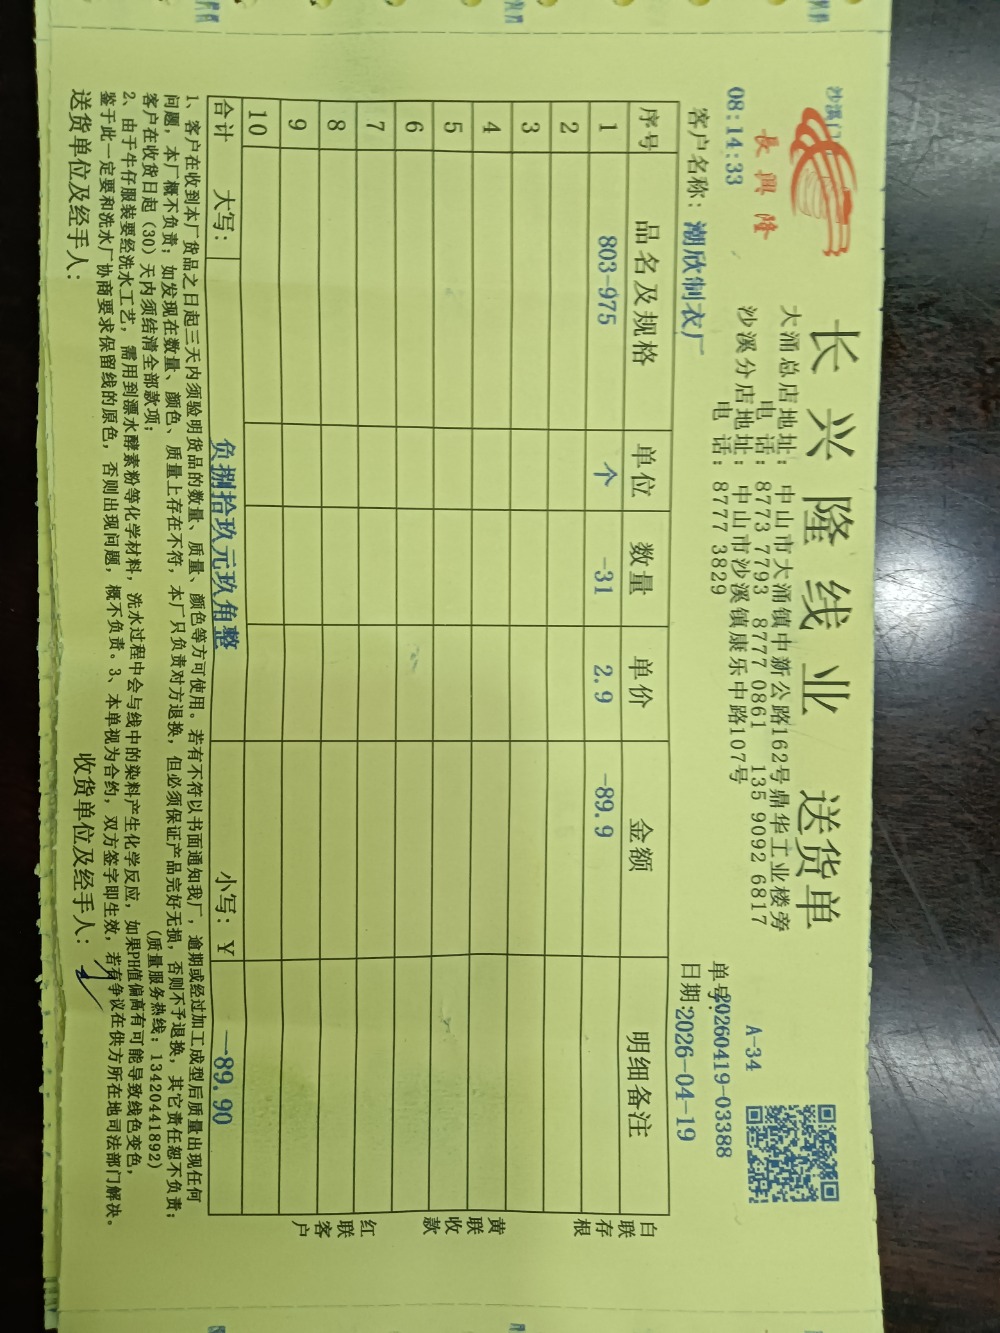 沙溪门
長興隆
08:14:33
长兴隆线业 送货单
大涌总店地址：中山市大涌镇中新公路162号鼎华工业楼旁
电 话：8773 7793 8777 0861 135 9092 6817
沙溪分店地址：中山市沙溪镇康乐中路107号
电 话：8777 3829
A-34
单号:20260419-03388
客户名称：潮欣制衣厂
日期:2026-04-19
序号 品名及规格 单位 数量 单价 金额 明细备注
1 803-975 个 -31 2.9 -89.9
2
3
4
5
6
7
8
9
10
合计 大写： 负捌拾玖元玖角整 小写：￥ -89.90
白联存根
黄联收款
红联客户
1、客户在收到本厂货品之日起三天内须验明货品的数量、质量、颜色等方可使用。若有不符以书面通知我厂，逾期或经过加工成型后质量出现任何
问题，本厂概不负责；如发现在数量、颜色、质量上存在不符，本厂只负责对方退换，但必须保证产品完好无损，否则不予退换，其它责任恕不负责；
客户在收货日起（30）天内须结清全部款项； （质量服务热线：13420441892）
2、由于牛仔服装要经洗水工艺，需用到漂水酵素粉等化学材料，洗水过程中会与线中的染料产生化学反应，如果PH值偏高有可能导致线色变色，
鉴于此一定要和洗水厂协商要求保留线的原色，否则出现问题，概不负责。3、本单视为合约，双方签字即生效，若有争议在供方所在地司法部门解决。
送货单位及经手人： 收货单位及经手人：